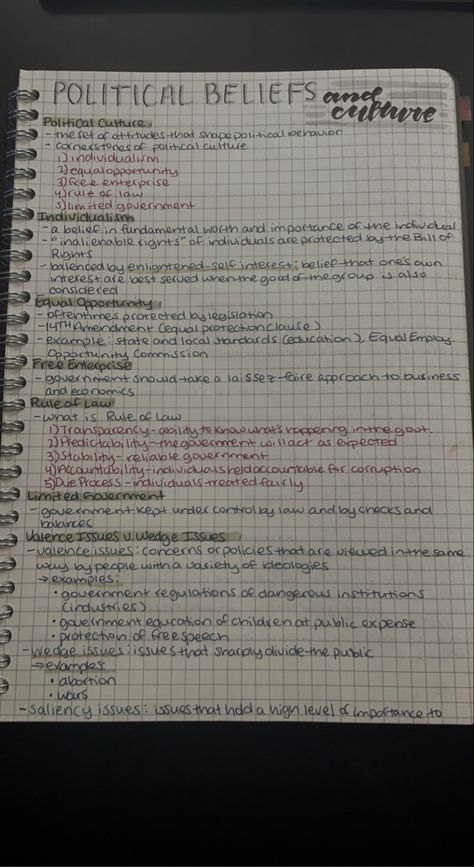 POLITICAL BELIEFS and culture
Political Culture
- the set of attitudes that shape political behavior
- cornerstones of political culture
1) individualism
2) equal opportunity
3) free enterprise
4) rule of law
5) limited government
Individualism
- a belief in fundamental worth and importance of the individual
- "inalienable rights" of individuals are protected by the Bill of
Rights
- balenced by enlightened-self interest; belief that one's own
interest are best served when the good of the group is also
considered
Equal Opportunity
- oftentimes protected by legislation
- 14TH Amendment (equal protection clause)
- example: state and local standards (education), Equal Employ.
Opportunity Commission
Free Enterprise
- government should take a laissez-faire approach to business
and economics
Rule of Law
- what is Rule of Law
1) Transparency - ability to know what's happening in the govt.
2) Predictability - the government will act as expected
3) Stability - reliable government
4) Accountability - individuals held accountable for corruption
5) Due Process - individuals treated fairly
Limited Government
- government kept under control by law and by checks and
balances
Valence Issues v. Wedge Issues
- valence issues: concerns or policies that are viewed in the same
way by people with a variety of ideologies
→ examples:
• government regulations of dangerous institutions
(industries)
• government education of children at public expense
• protection of free speech
- wedge issues: issues that sharply divide the public
⇒ examples
• abortion
• wars
- saliency issues: issues that hold a high level of importance to